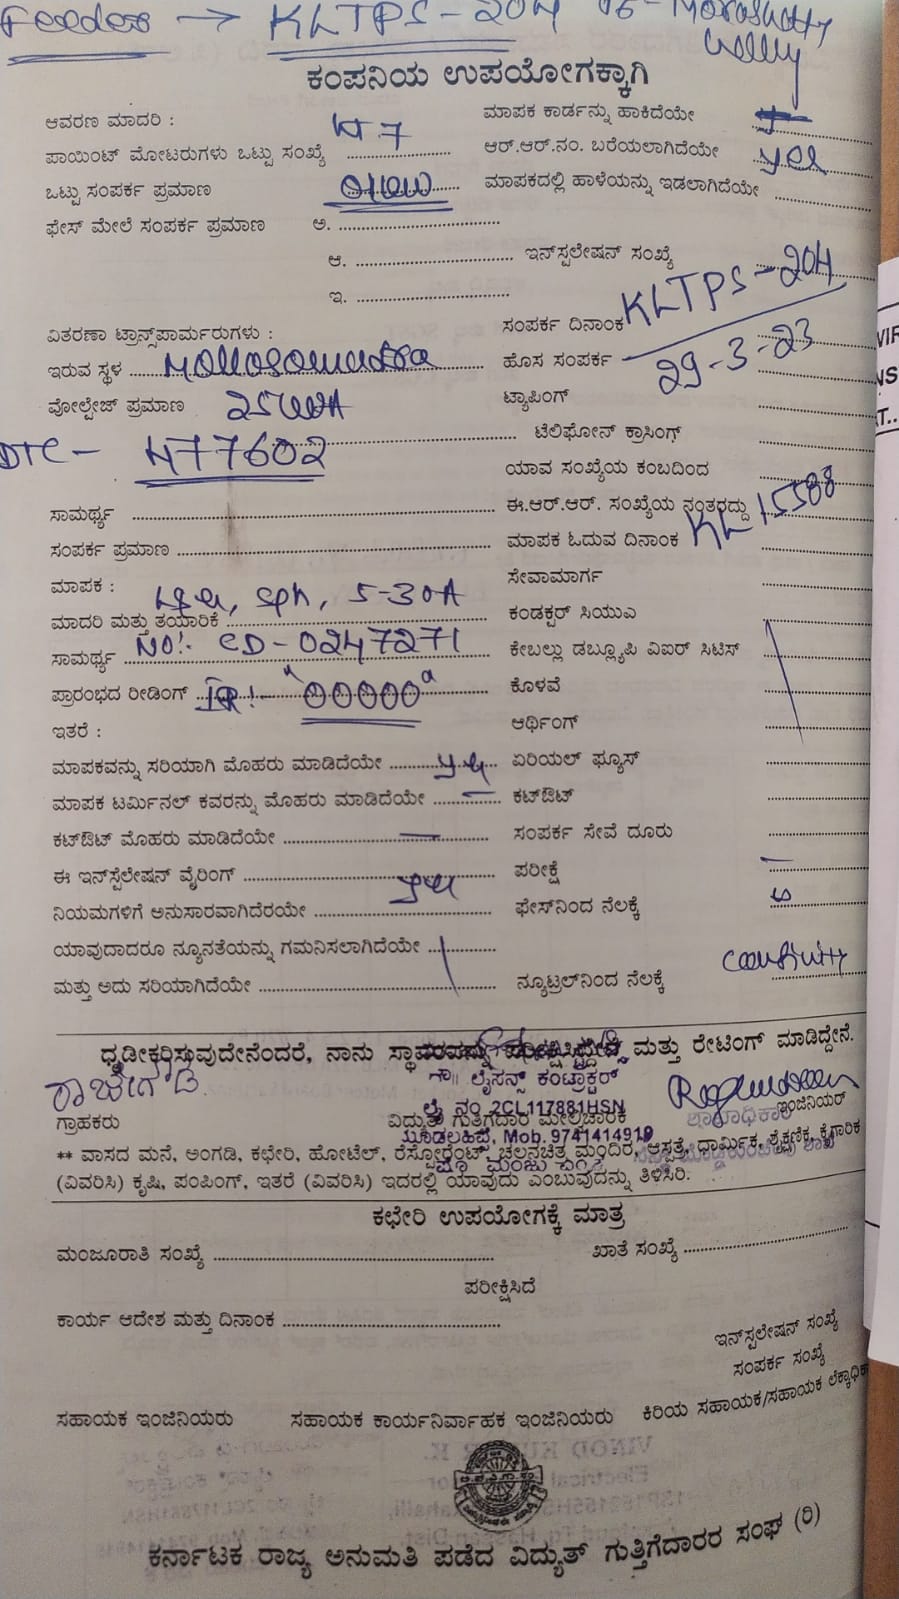 Feeder → KLTPS-204
ಕಂಪನಿಯ ಉಪಯೋಗಕ್ಕಾಗಿ
ಆವರಣ ಮಾದರಿ :
ಮಾಪಕ ಕಾರ್ಡನ್ನು ಹಾಕಿದೆಯೇ
ಪಾಯಿಂಟ್ ಮೋಟರುಗಳು ಒಟ್ಟು ಸಂಖ್ಯೆ
ಆರ್.ಆರ್.ನಂ. ಬರೆಯಲಾಗಿದೆಯೇ yes
ಒಟ್ಟು ಸಂಪರ್ಕ ಪ್ರಮಾಣ
ಮಾಪಕದಲ್ಲಿ ಹಾಳೆಯನ್ನು ಇಡಲಾಗಿದೆಯೇ
ಫೇಸ್ ಮೇಲೆ ಸಂಪರ್ಕ ಪ್ರಮಾಣ ಅ.
ಆ. ಇನ್‌ಸ್ಪಲೇಷನ್ ಸಂಖ್ಯೆ
ಇ.
KLTPS-204
ವಿತರಣಾ ಟ್ರಾನ್ಸ್‌ಪಾರ್ಮರುಗಳು :
ಸಂಪರ್ಕ ದಿನಾಂಕ
ಇರುವ ಸ್ಥಳ
ಹೊಸ ಸಂಪರ್ಕ 29-3-23
ವೋಲ್ಟೇಜ್ ಪ್ರಮಾಣ
ಟ್ಯಾಪಿಂಗ್
DTC - N77602
ಟೆಲಿಫೋನ್ ಕ್ರಾಸಿಂಗ್
ಯಾವ ಸಂಖ್ಯೆಯ ಕಂಬದಿಂದ
ಸಾಮರ್ಥ್ಯ
ಈ.ಆರ್.ಆರ್. ಸಂಖ್ಯೆಯ ನಂತರದ್ದು
ಸಂಪರ್ಕ ಪ್ರಮಾಣ
ಮಾಪಕ ಓದುವ ದಿನಾಂಕ KL15588
ಮಾಪಕ :
ಸೇವಾಮಾರ್ಗ
ಮಾದರಿ ಮತ್ತು ತಯಾರಿಕೆ 5-30A
ಕಂಡಕ್ಟರ್ ಸಿಯುಎ
ಸಾಮರ್ಥ್ಯ NO:- CD-0247271
ಕೇಬಲ್ಲು ಡಬ್ಲ್ಯೂಪಿ ವಿಐರ್ ಸಿಟಿಸ್
ಪ್ರಾರಂಭದ ರೀಡಿಂಗ್ IR:- "00000"
ಕೊಳವೆ
ಇತರೆ :
ಆರ್ಥಿಂಗ್
ಮಾಪಕವನ್ನು ಸರಿಯಾಗಿ ಮೊಹರು ಮಾಡಿದೆಯೇ
ಏರಿಯಲ್ ಫ್ಯೂಸ್
ಮಾಪಕ ಟರ್ಮಿನಲ್ ಕವರನ್ನು ಮೊಹರು ಮಾಡಿದೆಯೇ
ಕಟ್‌ಔಟ್
ಕಟ್‌ಔಟ್ ಮೊಹರು ಮಾಡಿದೆಯೇ
ಸಂಪರ್ಕ ಸೇವೆ ದೂರು
ಈ ಇನ್‌ಸ್ಪೆಲೇಷನ್ ವೈರಿಂಗ್
ಪರೀಕ್ಷೆ
ನಿಯಮಗಳಿಗೆ ಅನುಸಾರವಾಗಿದೆರಯೇ
ಫೇಸ್‌ನಿಂದ ನೆಲಕ್ಕೆ
ಯಾವುದಾದರೂ ನ್ಯೂನತೆಯನ್ನು ಗಮನಿಸಲಾಗಿದೆಯೇ
ಮತ್ತು ಅದು ಸರಿಯಾಗಿದೆಯೇ
ನ್ಯೂಟ್ರಲ್‌ನಿಂದ ನೆಲಕ್ಕೆ
ಧ್ರಡೀಕರಿಸುವುದೇನೆಂದರೆ, ನಾನು ಮತ್ತು ರೇಟಿಂಗ್ ಮಾಡಿದ್ದೇನೆ.
ಲೈಸನ್ಸ್ ಕಂಟ್ರಾಕ್ಟರ್
ಲೈ ನಂ 2CL117881HSN
ಗ್ರಾಹಕರು
ವಿದ್ಯುತ್ ಗುತ್ತಿಗೆದಾರ ಮೇಲ್ವಿಚಾರಕ
ಇಂಜಿನಿಯರ್
Mob. 9741414919
** ವಾಸದ ಮನೆ, ಅಂಗಡಿ, ಕಛೇರಿ, ಹೋಟೆಲ್, ರೆಸ್ಟೋರೆಂಟ್, ಚಲನಚಿತ್ರ ಮಂದಿರ, ಆಸ್ಪತ್ರೆ, ಧಾರ್ಮಿಕ, ಶೈಕ್ಷಣಿಕ, ಕೈಗಾರಿಕ
(ವಿವರಿಸಿ) ಕೃಷಿ, ಪಂಪಿಂಗ್, ಇತರೆ (ವಿವರಿಸಿ) ಇದರಲ್ಲಿ ಯಾವುದು ಎಂಬುವುದನ್ನು ತಿಳಿಸಿರಿ.
ಕಛೇರಿ ಉಪಯೋಗಕ್ಕೆ ಮಾತ್ರ
ಮಂಜೂರಾತಿ ಸಂಖ್ಯೆ
ಖಾತೆ ಸಂಖ್ಯೆ
ಪರೀಕ್ಷಿಸಿದೆ
ಕಾರ್ಯ ಆದೇಶ ಮತ್ತು ದಿನಾಂಕ
ಇನ್‌ಸ್ಪಲೇಷನ್ ಸಂಖ್ಯೆ
ಸಂಪರ್ಕ ಸಂಖ್ಯೆ
ಸಹಾಯಕ ಇಂಜಿನಿಯರು ಸಹಾಯಕ ಕಾರ್ಯನಿರ್ವಾಹಕ ಇಂಜಿನಿಯರು ಕಿರಿಯ ಸಹಾಯಕ/ಸಹಾಯಕ
ಕರ್ನಾಟಕ ರಾಜ್ಯ ಅನುಮತಿ ಪಡೆದ ವಿದ್ಯುತ್ ಗುತ್ತಿಗೆದಾರರ ಸಂಘ (ರಿ)